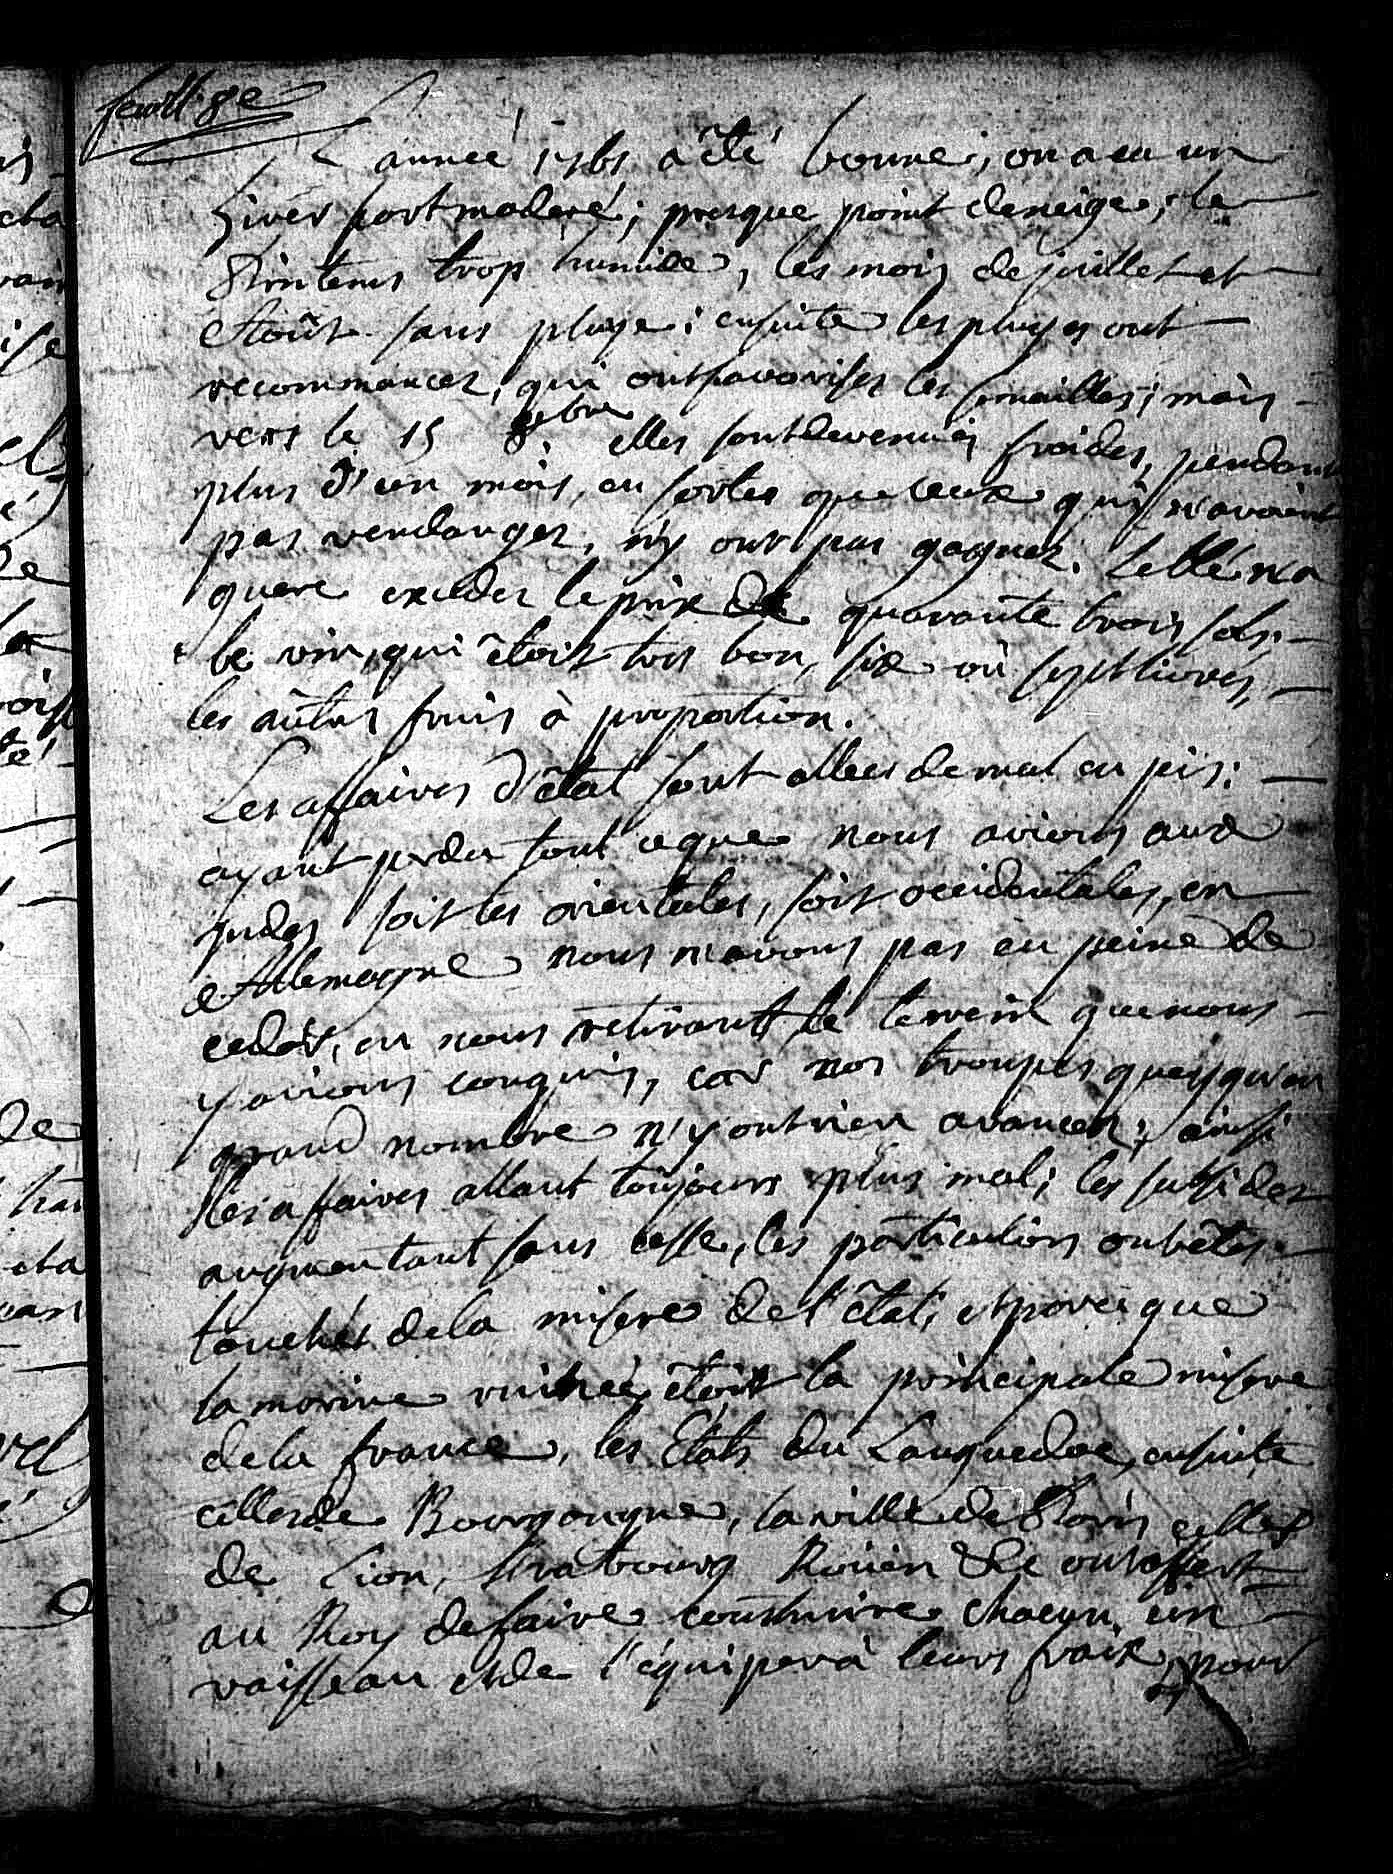 feuill. 8e
L'année 1761 a êté bonne, on a eu un
hiver fort moderé; presque point de neige, le
Printems trop humide, les mois de juillet et
Août sans pluye; ensuite les pluyes ont
recommancez, qui ont favorisez les semailles; mais
vers le 15 8.bre elles sont devenues froides, pendant
plus d'un mois, en sortes que ceux qui n'avoient
pas vendangez, n'y ont pas gagnez. Le blé n'a
quere exceder le prix de quarante trois sols;
le vin, qui êtoit tres bon, six où sept livres,
les aûtres fruis à proportion.
Les affaires d'êtat sont allées de mal en pis;
ayant perdu tout ce que nous avions aux
jndes soit les orientales, soit occidentales, en
Allemagne nous n'avons pas eu peine de
ceder, en nous retirant le terrein que nous
y avions conquis, car nos troupes quoyqu'en
grand nombre n'y ont rien avancer; ainsi
les affaires allant toûjours plus mal; les subsides
augmentant sans cesse, les particuliers ont êtes
touchés de la misere de l'êtat, et parce que
la marine ruinée êtoit la principale misere
de la france, les Etats du Languedoc, ensuite
celles de Bourgongne, la ville de Paris celles
de Lion, strasbourg Roüen &c ont offert
au Roy de faire construire chacun un
vaisseau et de l'équiper à leurs fraix, pour